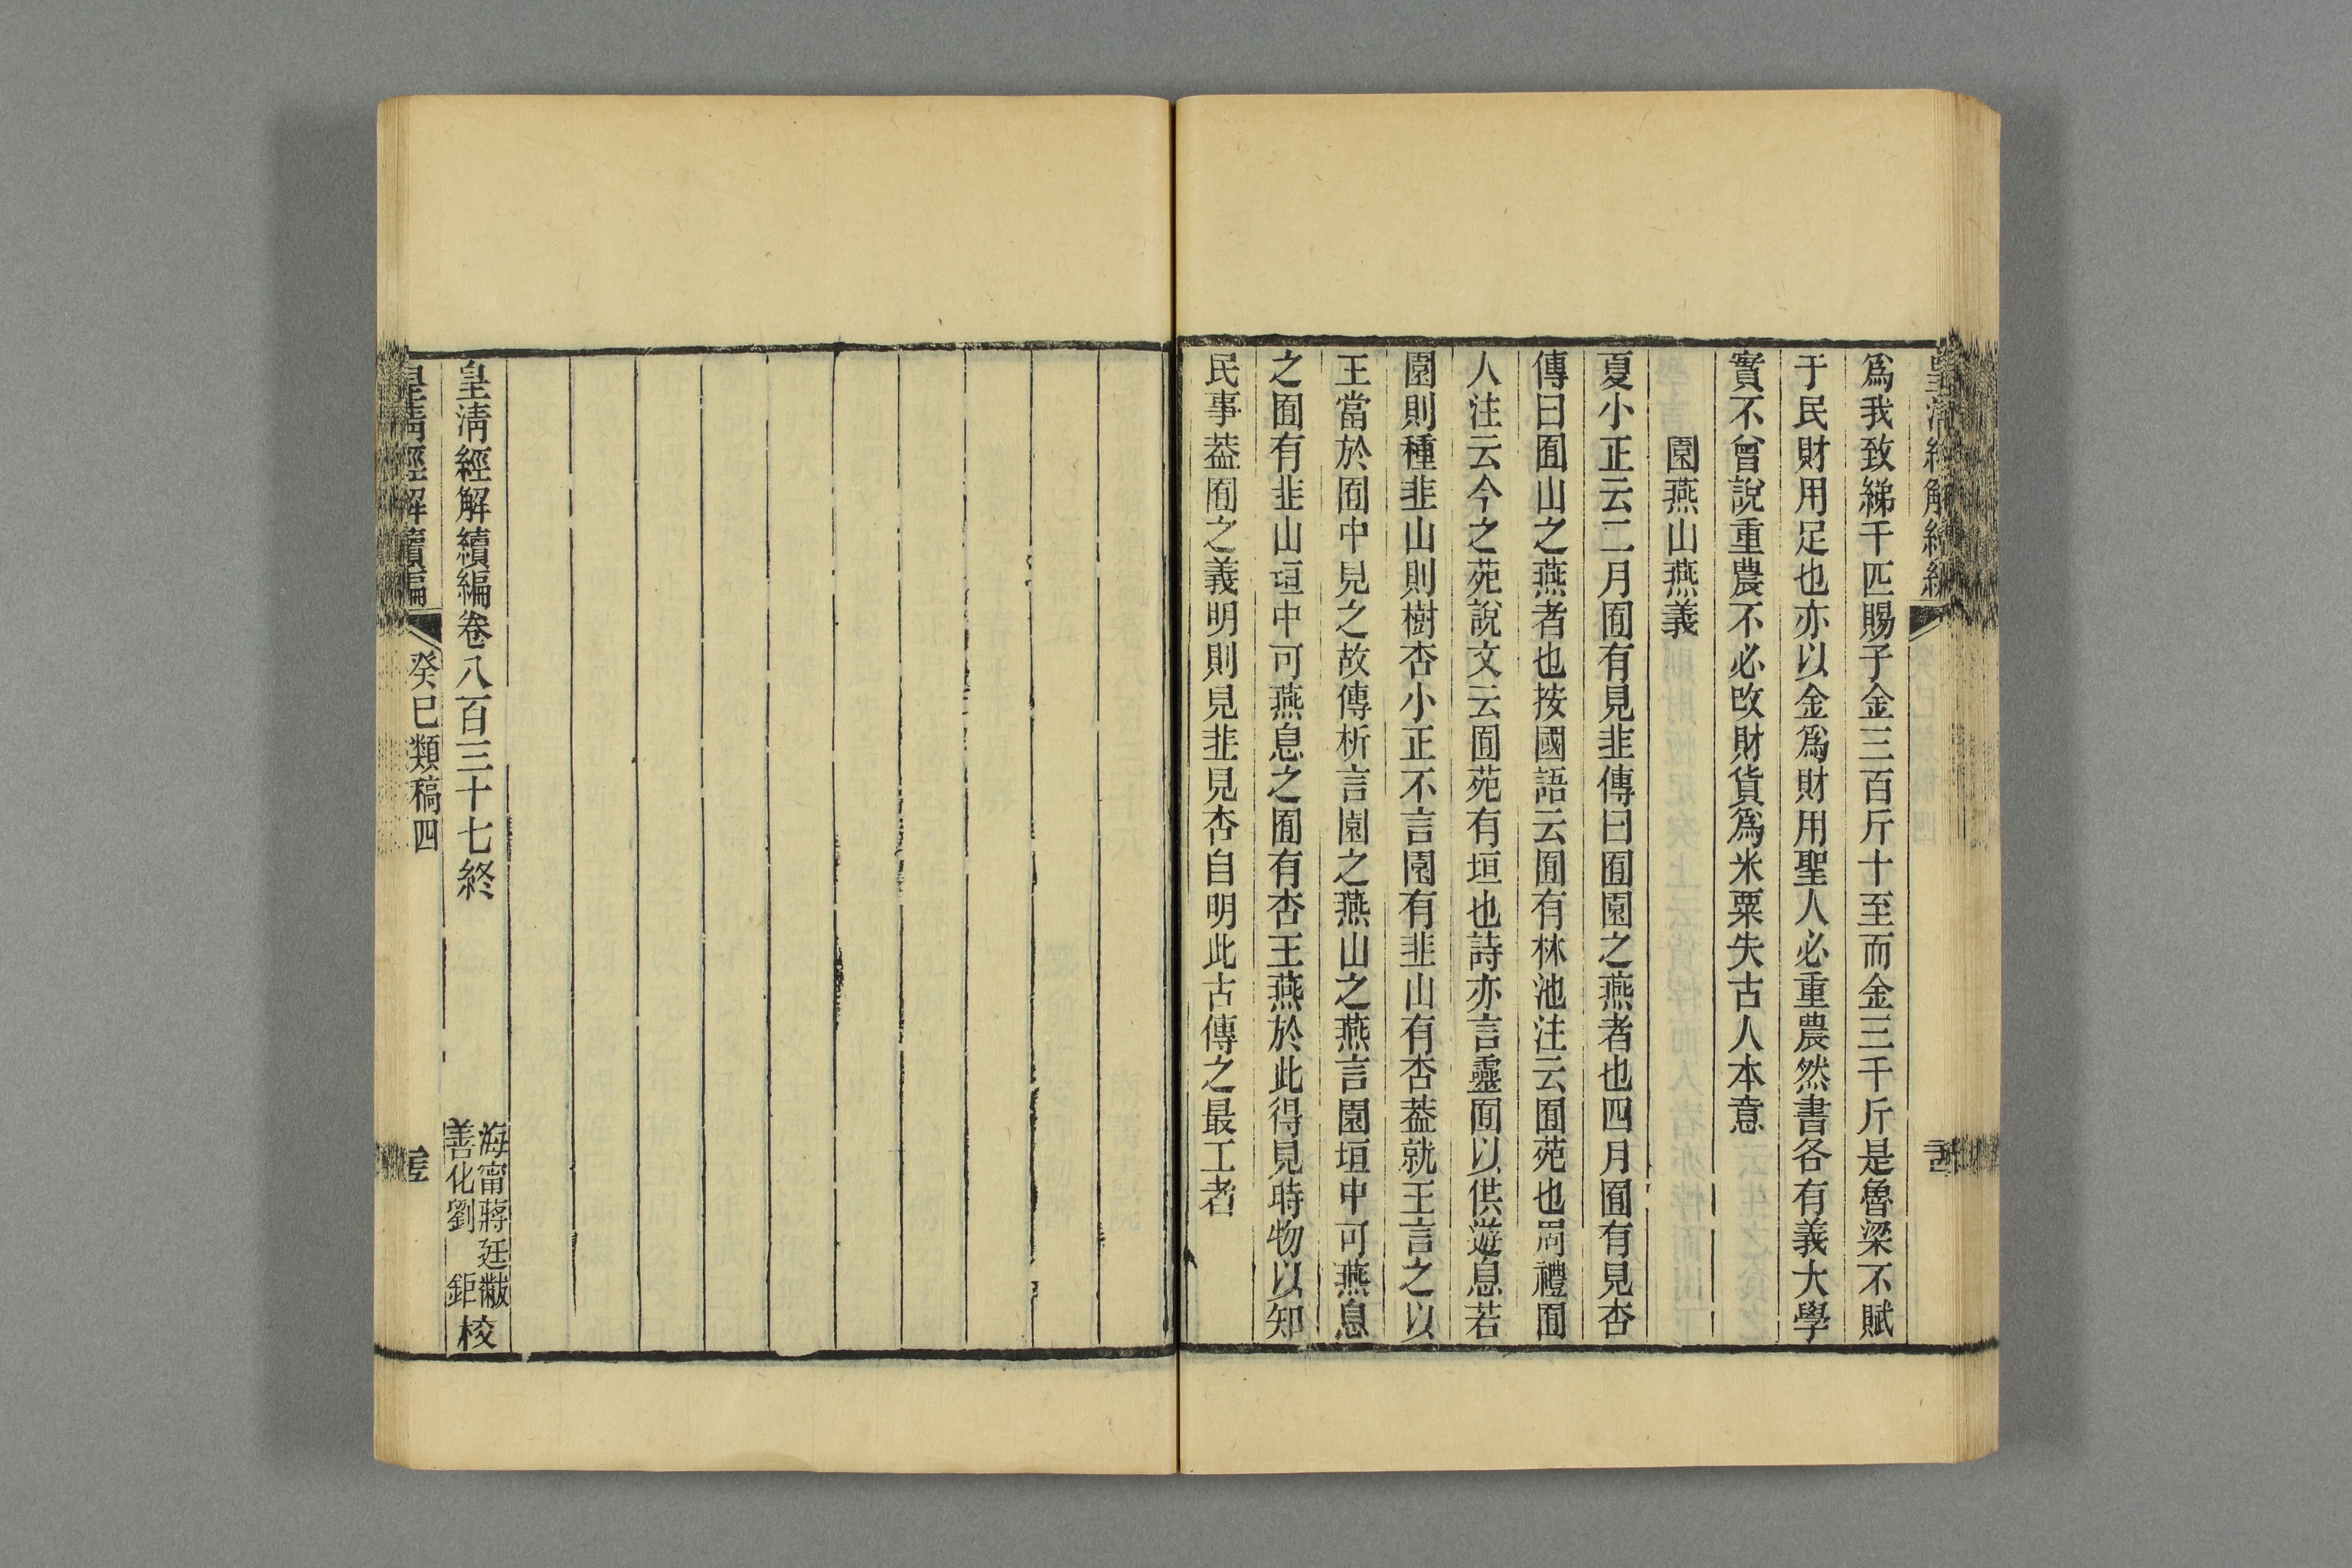 爲我致綈千匹賜子金三百斤十至而金三千斤是魯梁不賦
于民財用足也亦以金爲財用聖人必重農然書各有義大學
實不曾說重農不必改財貨爲米粟失古人本意
園燕山燕義
夏小正云二月囿有見韭傳曰囿園之燕者也四月囿有見杏
傳曰囿山之燕者也按國語云囿有林池注云囿苑也周禮囿
人注云今之苑說文云囿苑有垣也詩亦言靈囿以供遊息若
園則種韭山則樹杏小正不言園有韭山有杏葢就王言之以
王當於囿中見之故傳析言園之燕山之燕言園垣中可燕息
之囿有韭山垣中可燕息之囿有杏王燕於此得見時物以知
民事葢囿之義明則見韭見杏自明此古傳之最工者
皇清經解續編卷八百三十七終
海甯蔣廷黻
善化劉 鉅
校
皇清經解續編
癸巳類稿四